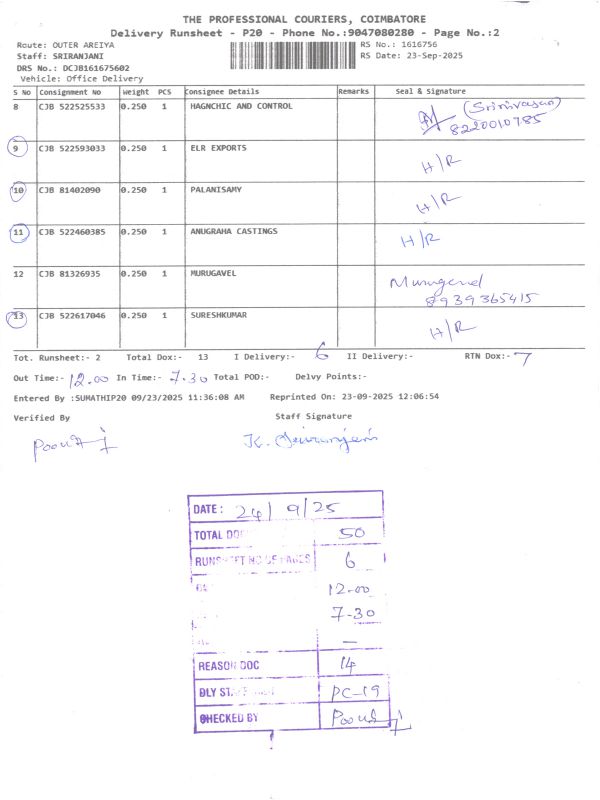 THE PROFESSIONAL COURIERS, COIMBATORE
Delivery Runsheet - P20 - Phone No.:9047080280 - Page No.:2
Route: OUTER AREIYA RS No.: 1616756
Staff: SRIRANJANI RS Date: 23-Sep-2025
DRS No.: DCJB161675602
Vehicle: Office Delivery
S No Consignment No Weight PCS Consignee Details Remarks Seal & Signature
8 CJB 522525533 0.250 1 HAGNCHIC AND CONTROL (Srinivasan) 8220010785
9 CJB 522593033 0.250 1 ELR EXPORTS H/R
10 CJB 81402090 0.250 1 PALANISAMY H/R
11 CJB 522460385 0.250 1 ANUGRAHA CASTINGS H/R
12 CJB 81326935 0.250 1 MURUGAVEL 8939365415
13 CJB 522617046 0.250 1 SURESHKUMAR H/R
Tot. Runsheet:- 2 Total Dox:- 13 I Delivery:- 6 II Delivery:- RTN Dox:- 7
Out Time:- 12.00 In Time:- 7.30 Total POD:- Delvy Points:-
Entered By :SUMATHIP20 09/23/2025 11:36:08 AM Reprinted On: 23-09-2025 12:06:54
Verified By Staff Signature
DATE: 24/9/25
TOTAL DOC 50
RUNSHEET NO OF PAGES 6
12-00
7-30
—
REASON DOC 14
DLY STAFF PC-19
CHECKED BY